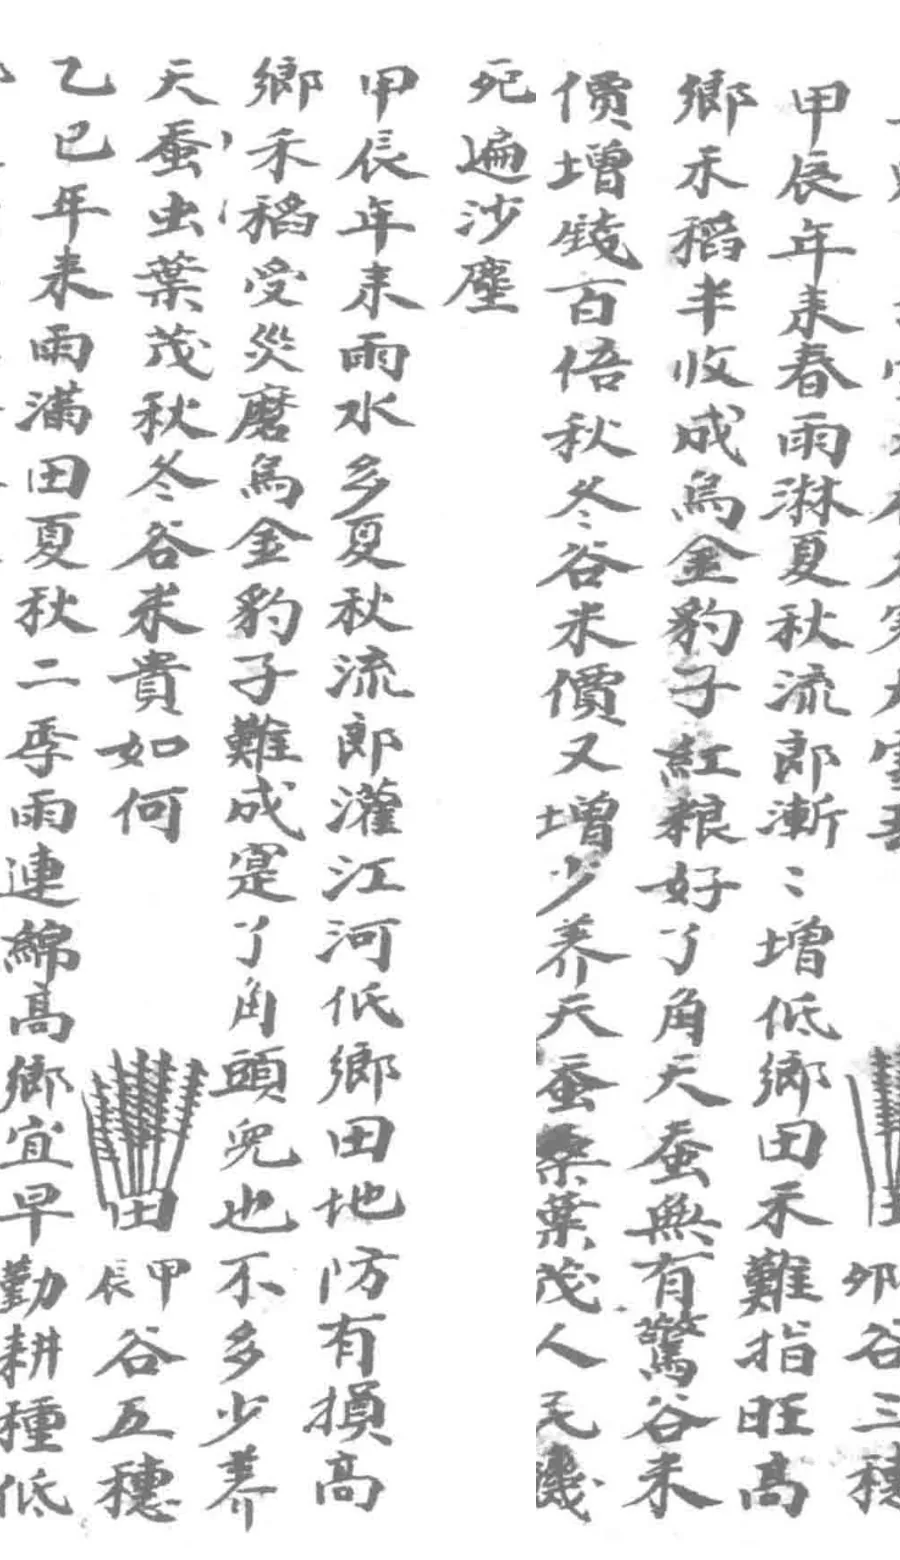 卯谷三穗
甲辰年来春雨淋夏秋流郎漸〻增低鄉田禾難指旺高
鄉禾稻半收成烏金豹子紅粮好了角天蚕無有驚谷米
價增錢百倍秋冬谷米價又增少养天蚕桑葉茂人民饑
死遍沙塵
甲辰年来雨水多夏秋流郎灌江河低鄉田地防有損高
鄉禾稻受災磨烏金豹子難成寔了角頭兒也不多少养
天蚕虫葉茂秋冬谷米貴如何
田
甲辰谷五穗
乙巳年来雨滿田夏秋二季雨連綿高鄉宜早勤耕種低